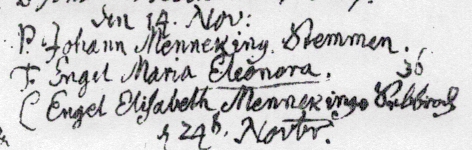 den 14. Nov:
P. Johann Menneking. Stemmen.
T. Engel Maria Eleonora.
C Engel Elisabeth Mennekings
d 24t. Novbr.